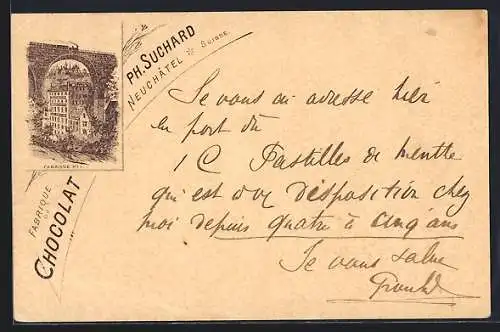 PH. SUCHARD
NEUCHÂTEL * SUISSE.
FABRIQUE N° 1
FABRIQUE
DE
CHOCOLAT
Je vous ai adressé hier
en port dû
1 C Pastilles de menthe
qui est à vtre disposition chez
moi depuis quatre à cinq ans
Je vous salue